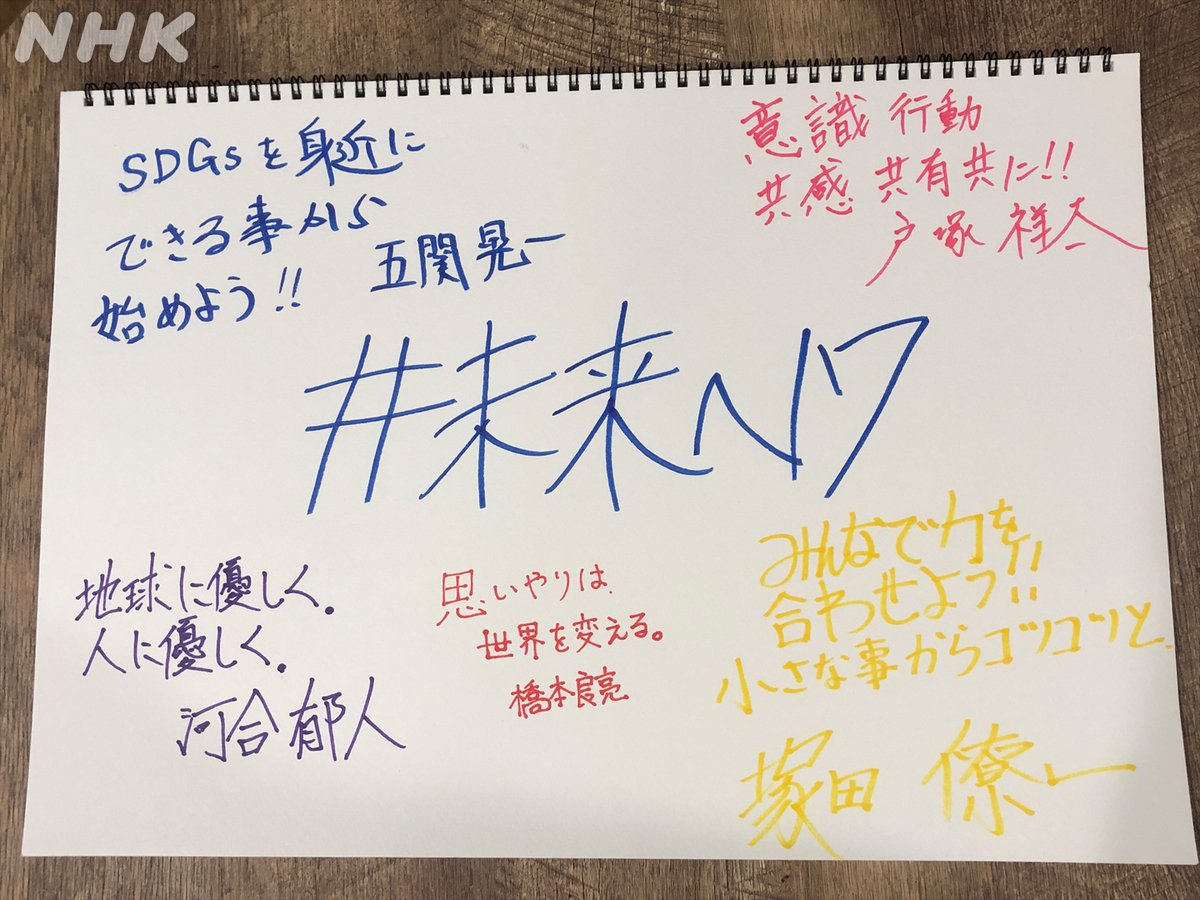 NHK
SDGsを身近に
できる事から
始めよう!!
五関晃一
意識 行動
共感 共有共に!!
戸塚祥太
#未来へ17
地球に優しく。
人に優しく。
河合郁人
思いやりは
世界を変える。
橋本良亮
みんなで力を
合わせよう!!
小さな事からコツコツと
塚田僚一